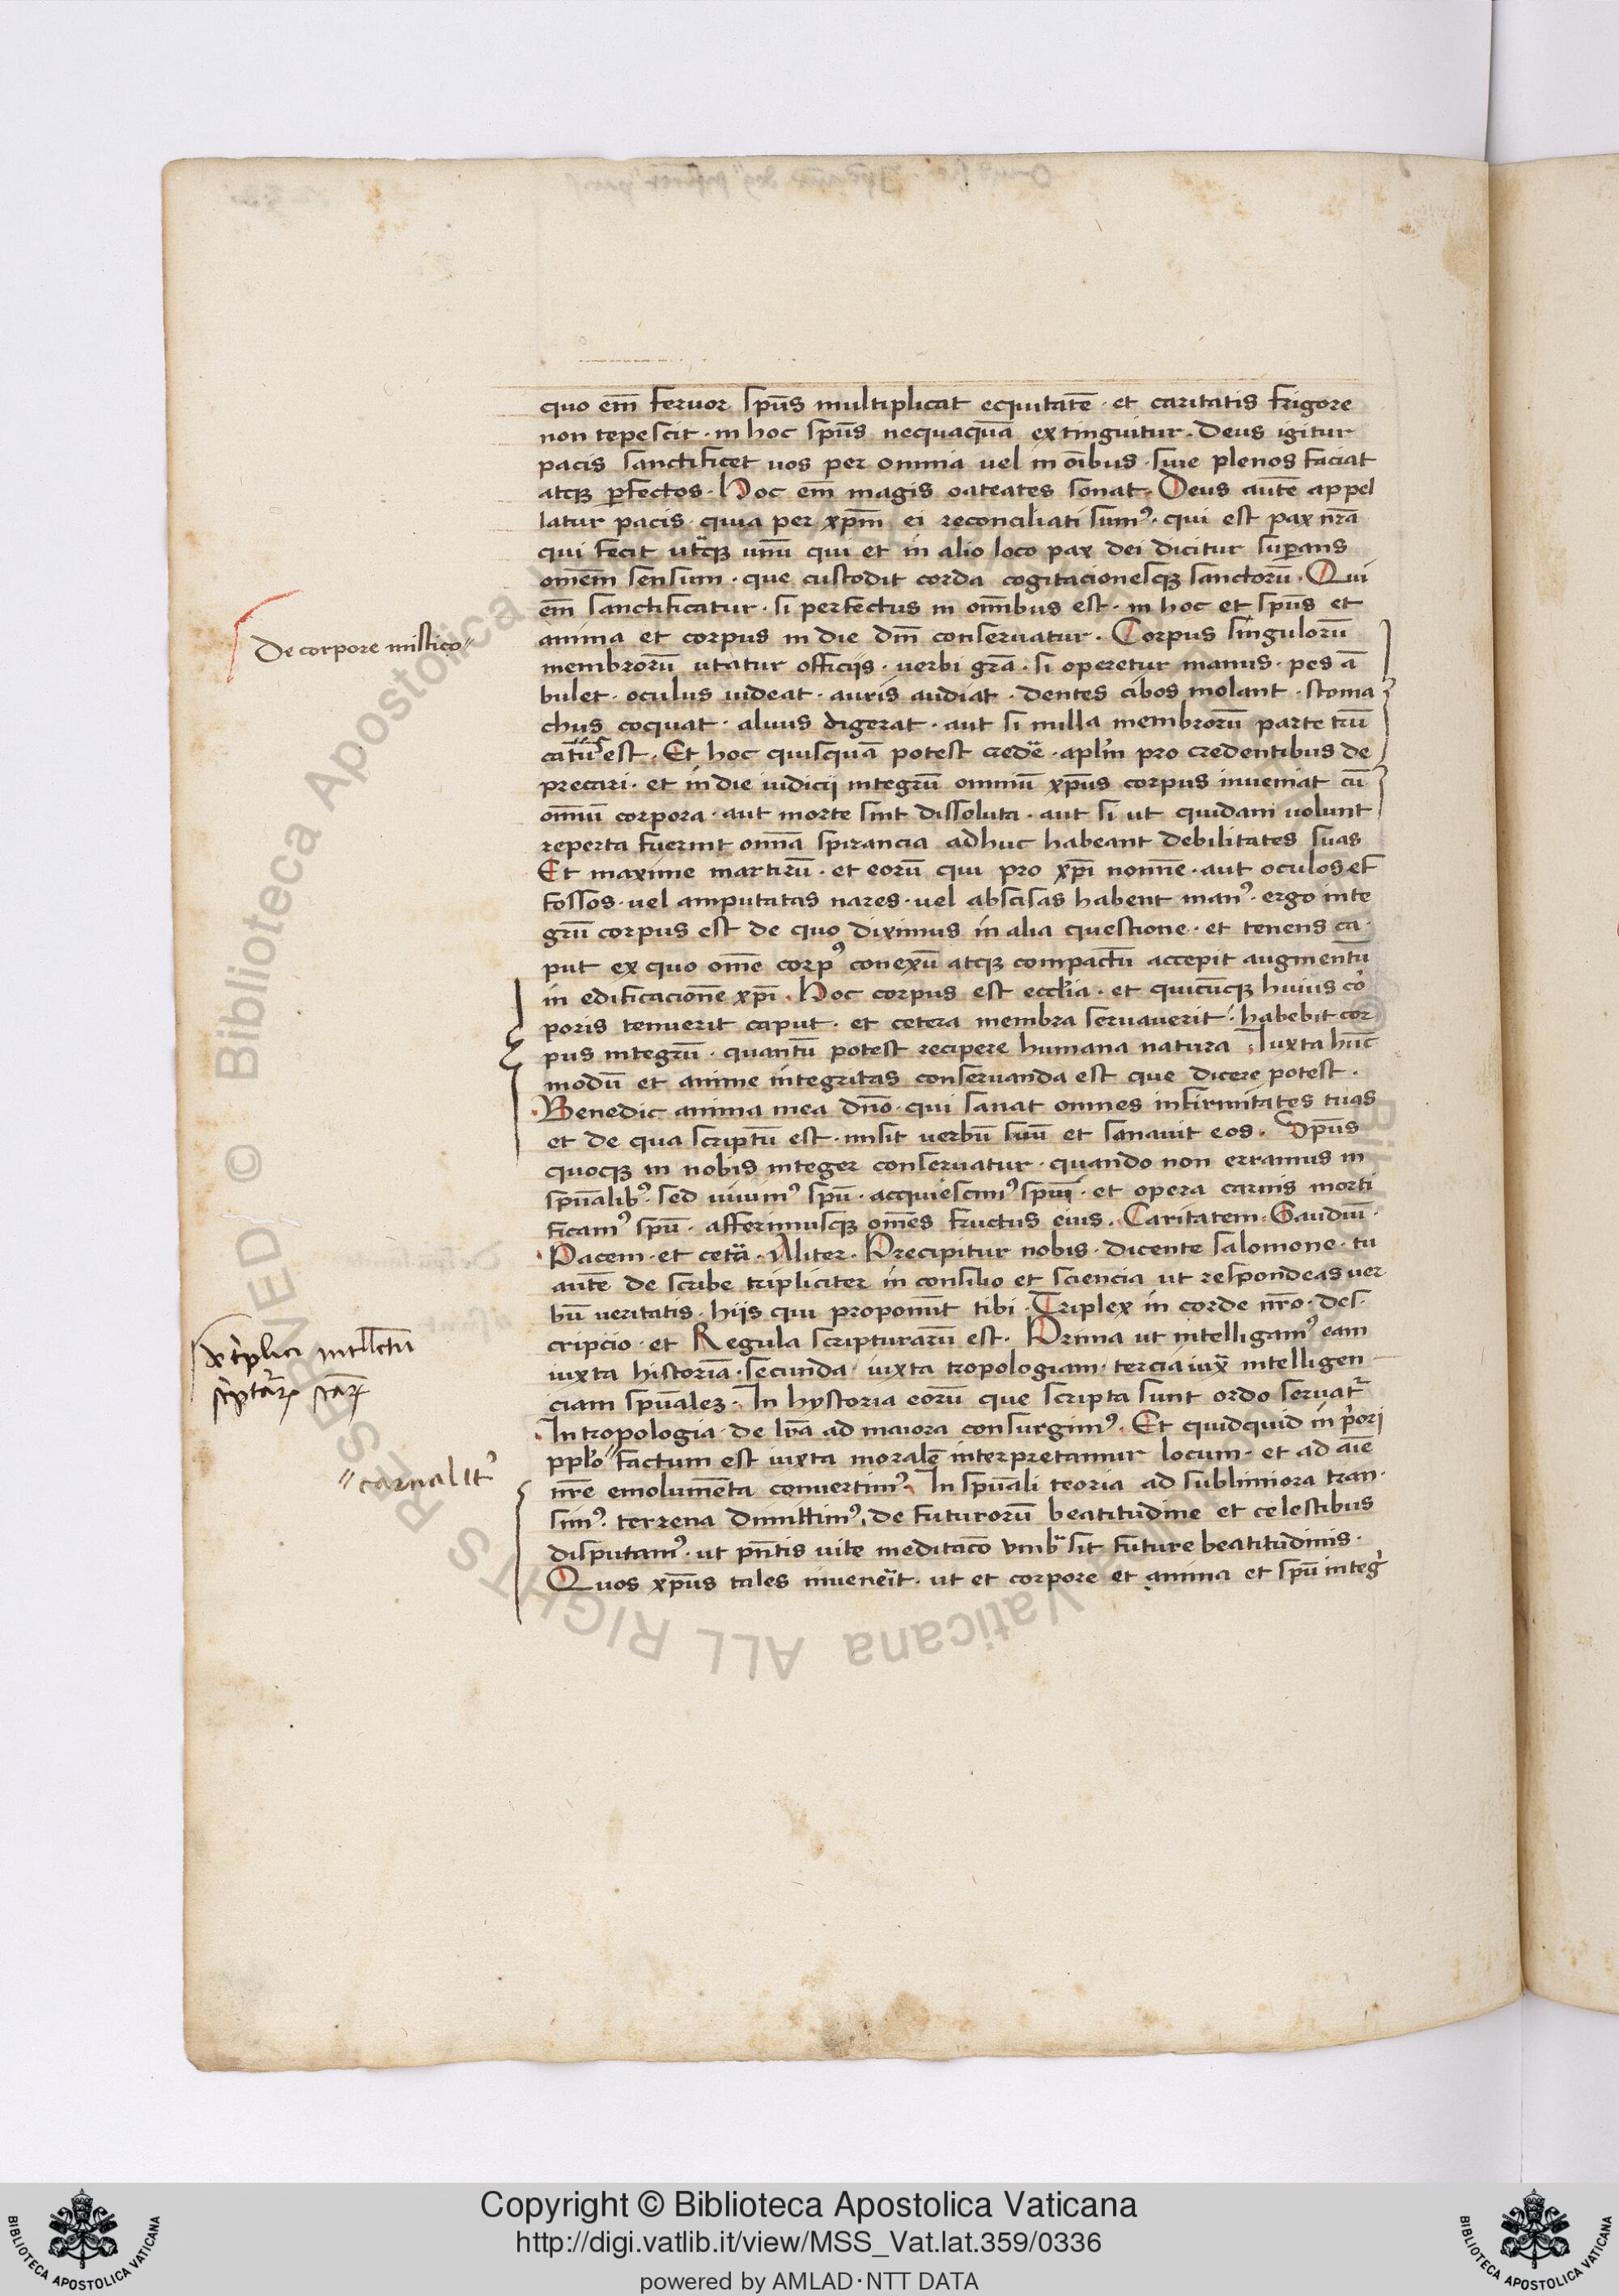 quo em̄ feruor sp̄us multiplicat equitatē · et caritatis frigore
non tepescit · in hoc sp̄us nequaquā extinguitur · Deus igitur
pacis sanctificet uos per omnia uel in oībus · siue plenos faciat
atqꝫ ꝑfectos · Hoc em̄ magis oateates sonat · Deus autē appel
latur pacis · quia per xp̄m ei reconciliati sumꝰ · qui est pax nr̄a
qui fecit utͣqꝫ unū qui et in alio loco pax dei dicitur suꝑans
omēm sensum · que custodit corda cogitacionesqꝫ sanctorū · Qui
em̄ sanctificatur · si perfectus in om̄ibus est · in hoc et sp̄us et
De corpore mistico
anima et corpus in die dn̄i conseruatur · Corpus singulorū
membrorū utatur officijs · verbi gr̄a · si operetur manus · pes ā
bulet · oculus uideat · auris audiat · dentes cibos molant · stoma
chus coquat · aluus digerat · aut si nulla membrorū parte trū
catū est · Et hoc quisquā potest credē · apl̄m pro credentibus de
precari · et in die iudicij integrū omniū xp̄us corpus inueniat cū
om̄iū corpora · aut morte sint dissoluta · aut si ut quidam uolunt
reperta fuerint om̄ia spirancia adhuc habeant debilitates suas
Et maxime martirū · et eorū qui pro xp̄i nomīe · aut oculos ef
fossos · uel amputatas nares · uel abscisas habent manꝰ · ergo inte
grū corpus est de quo diximus in alia questione · et tenens ca ·
put ex quo omē corpꝰ conexū atqꝫ compactū accepit augmentū
in edificacionē xp̄i · Hoc corpus est eccl̄ia · et quicūqꝫ huius cor
poris tenuerit caput · et cetera membra seruauerit · habebit cor
pus integrū · quantū potest recipere humana natura · Iuxta hūc
modū et anime integritas conseruanda est que dicere potest ·
Benedic anima mea dn̄o · qui sanat omnes infirmitates tuas
et de qua scriptū est · misit uerbū suū et sanauit eos · Sp̄us
quoqꝫ in nobis integer conseruatur · quando non erramus in
sp̄ualibꝰ · sed uiuimꝰ sp̄u · acquiescimꝰ sp̄ui · et opera carnis morti
ficamꝰ sp̄u · afferimusqꝫ omēs fructus eius · Caritatem · Gaudiū ·
Pacem · et cetͣa · Aliter · Precipitur nobis · dicente salomone · tu
autē de scribe tripliciter in consilio et sciencia ut respondeas uer
bū ueritatis · hijs qui proponūt tibi · Triplex in corde nr̄o · des ·
De tͥplici intll̄ctū
scͥptaꝝ scaꝝ
cripcio · et Regula scripturarū est · Prima ut intelligamꝰ eam
iuxta historiā · secunda · iuxta tropologiam · tercia iuxͣ intelligen
ciam sp̄ualeꝫ · In hystoria eorū que scripta sunt ordo seruatᷣ
In tropologia · de lr̄a ad maiora consurgimꝰ · Et quidquid in pͥori
carnalitꝰ
ppl̄o factum est iuxta moralē interpretamur locum · et ad aīe
nr̄e emolumēta conuertimꝰ · In sp̄uali teoria ad sublimiora tran ·
simꝰ · terrena dimittimꝰ · de futurorū beatitudine et celestibus
disputamꝰ · ut pn̄tis uite meditac̄o vmbͣ sit future beatitudinis ·
Quos xp̄us tales inuenēit · ut et corpore et anima et sp̄u integͥ
Copyright © Biblioteca Apostolica Vaticana
http://digi.vatlib.it/view/MSS_Vat.lat.359/0336
powered by AMLAD·NTT DATA